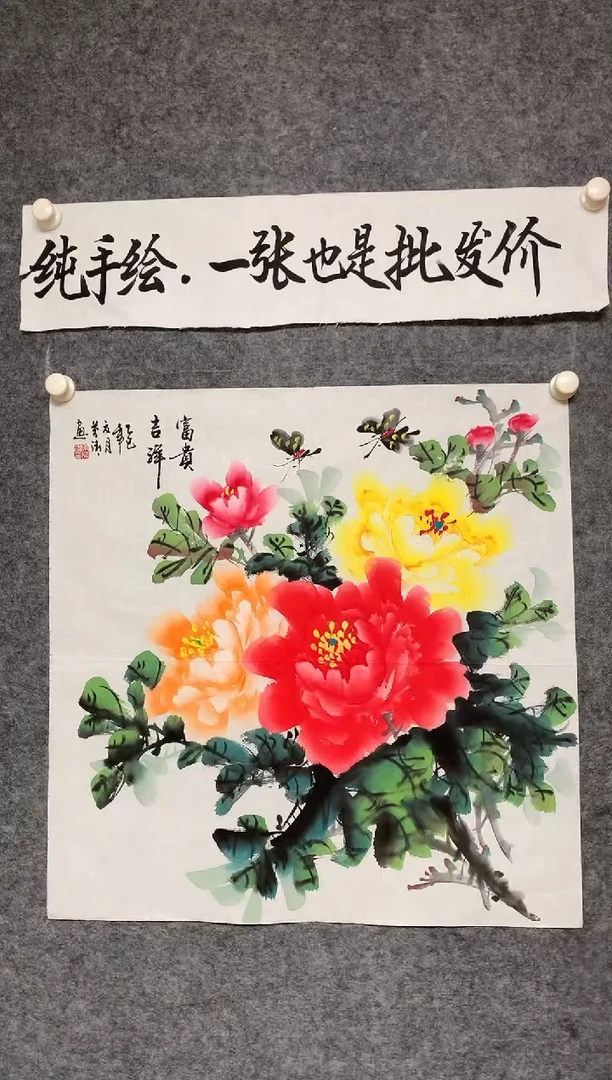 纯手绘.一张也是批发价
富貴
吉祥
乙巳
年
友月
画